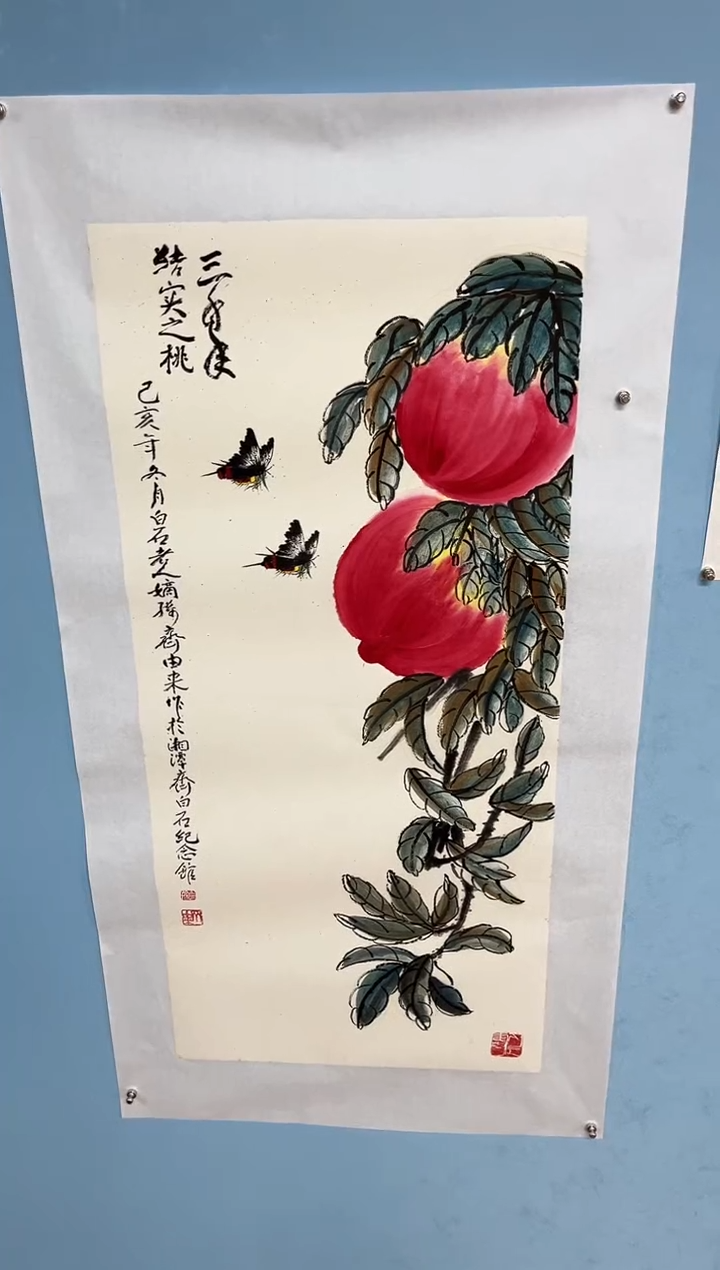 三千年
结实之桃
己亥年冬月白石老人嫡孙齐由来作于湘潭齐白石纪念馆